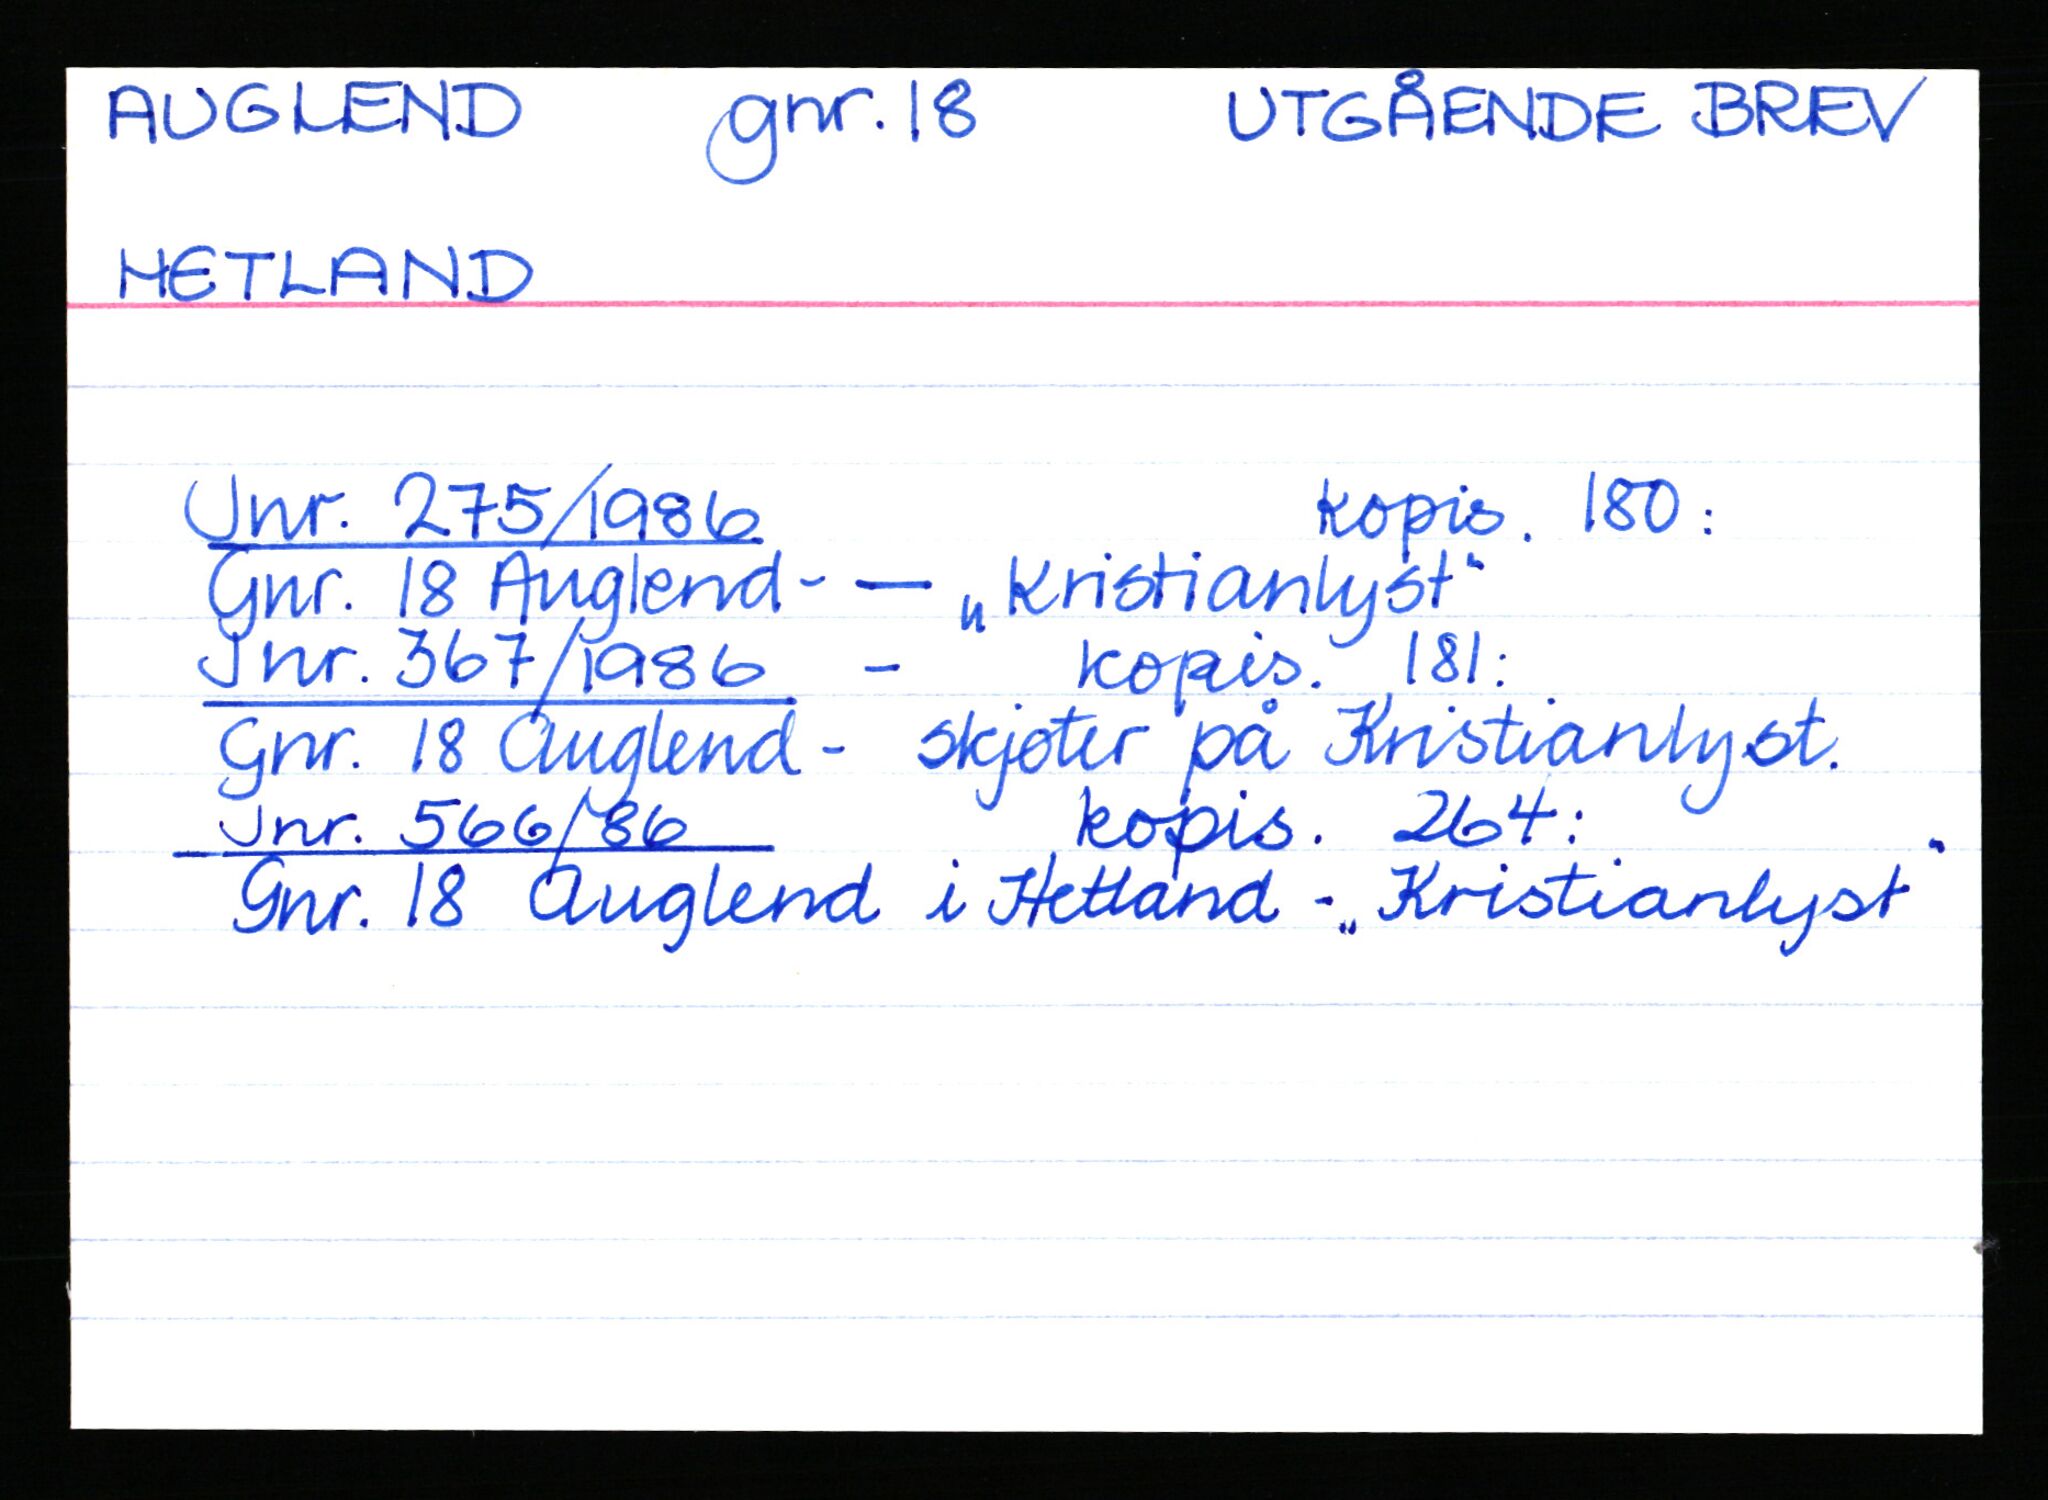 AUGLEND gnr. 18 UTGÅENDE BREV
HETLAND
Jnr. 275/1986 kopis. 180:
Gnr. 18 Auglend- — „Kristianlyst"
Jnr. 367/1986 - kopis. 181:
Gnr. 18 Auglend - skjøter på Kristianlyst.
Jnr. 566/86 kopis. 264:
Gnr. 18 Auglend i Hetland - „Kristianlyst"